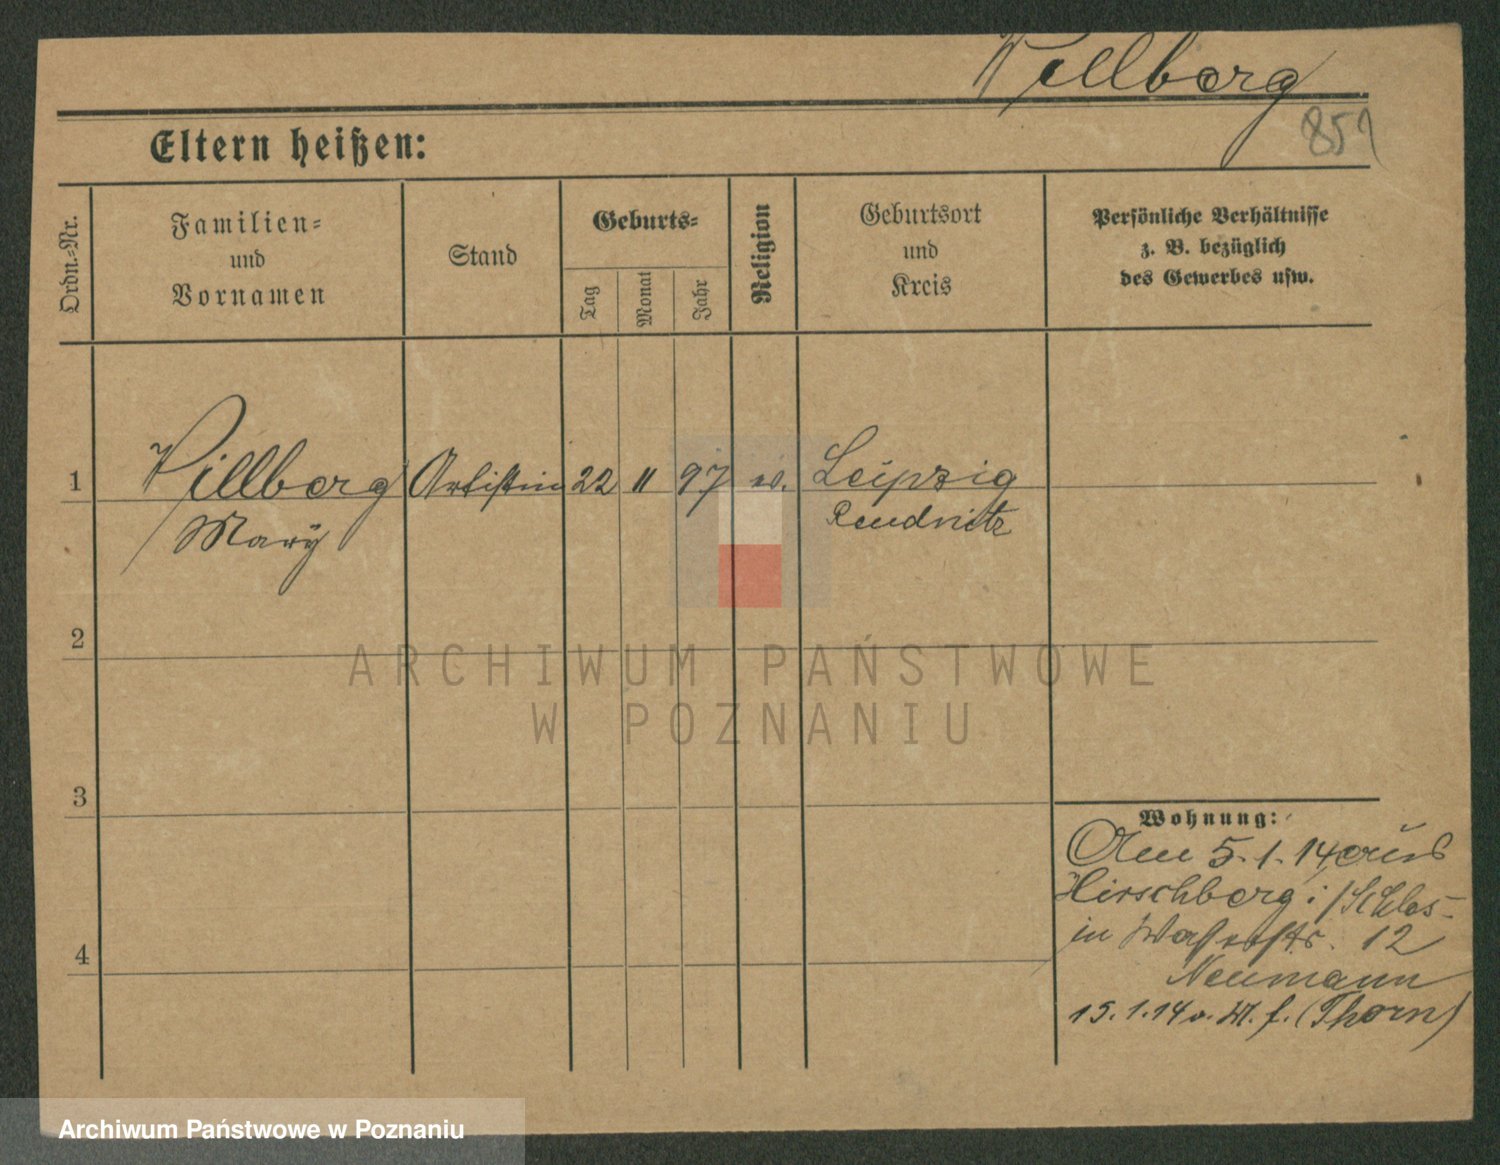 Willborg
851
Eltern heißen:
Ordn.-Nr.
Familien-
und
Vornamen
Stand
Geburts-
Tag
Monat
Jahr
Religion
Geburtsort
und
Kreis
Persönliche Verhältnisse
z. B. bezüglich
des Gewerbes usw.
1
Willborg Artistin 22 11 97 Leipzig
Mary Reudnitz
2
ARCHIWUM PAŃSTWOWE
W POZNANIU
3
4
Wohnung:
Am 5.1.14 aus
Hirschberg i/Schles-
in 12
Neumann
15.1.14 (Thorn)
Archiwum Państwowe w Poznaniu